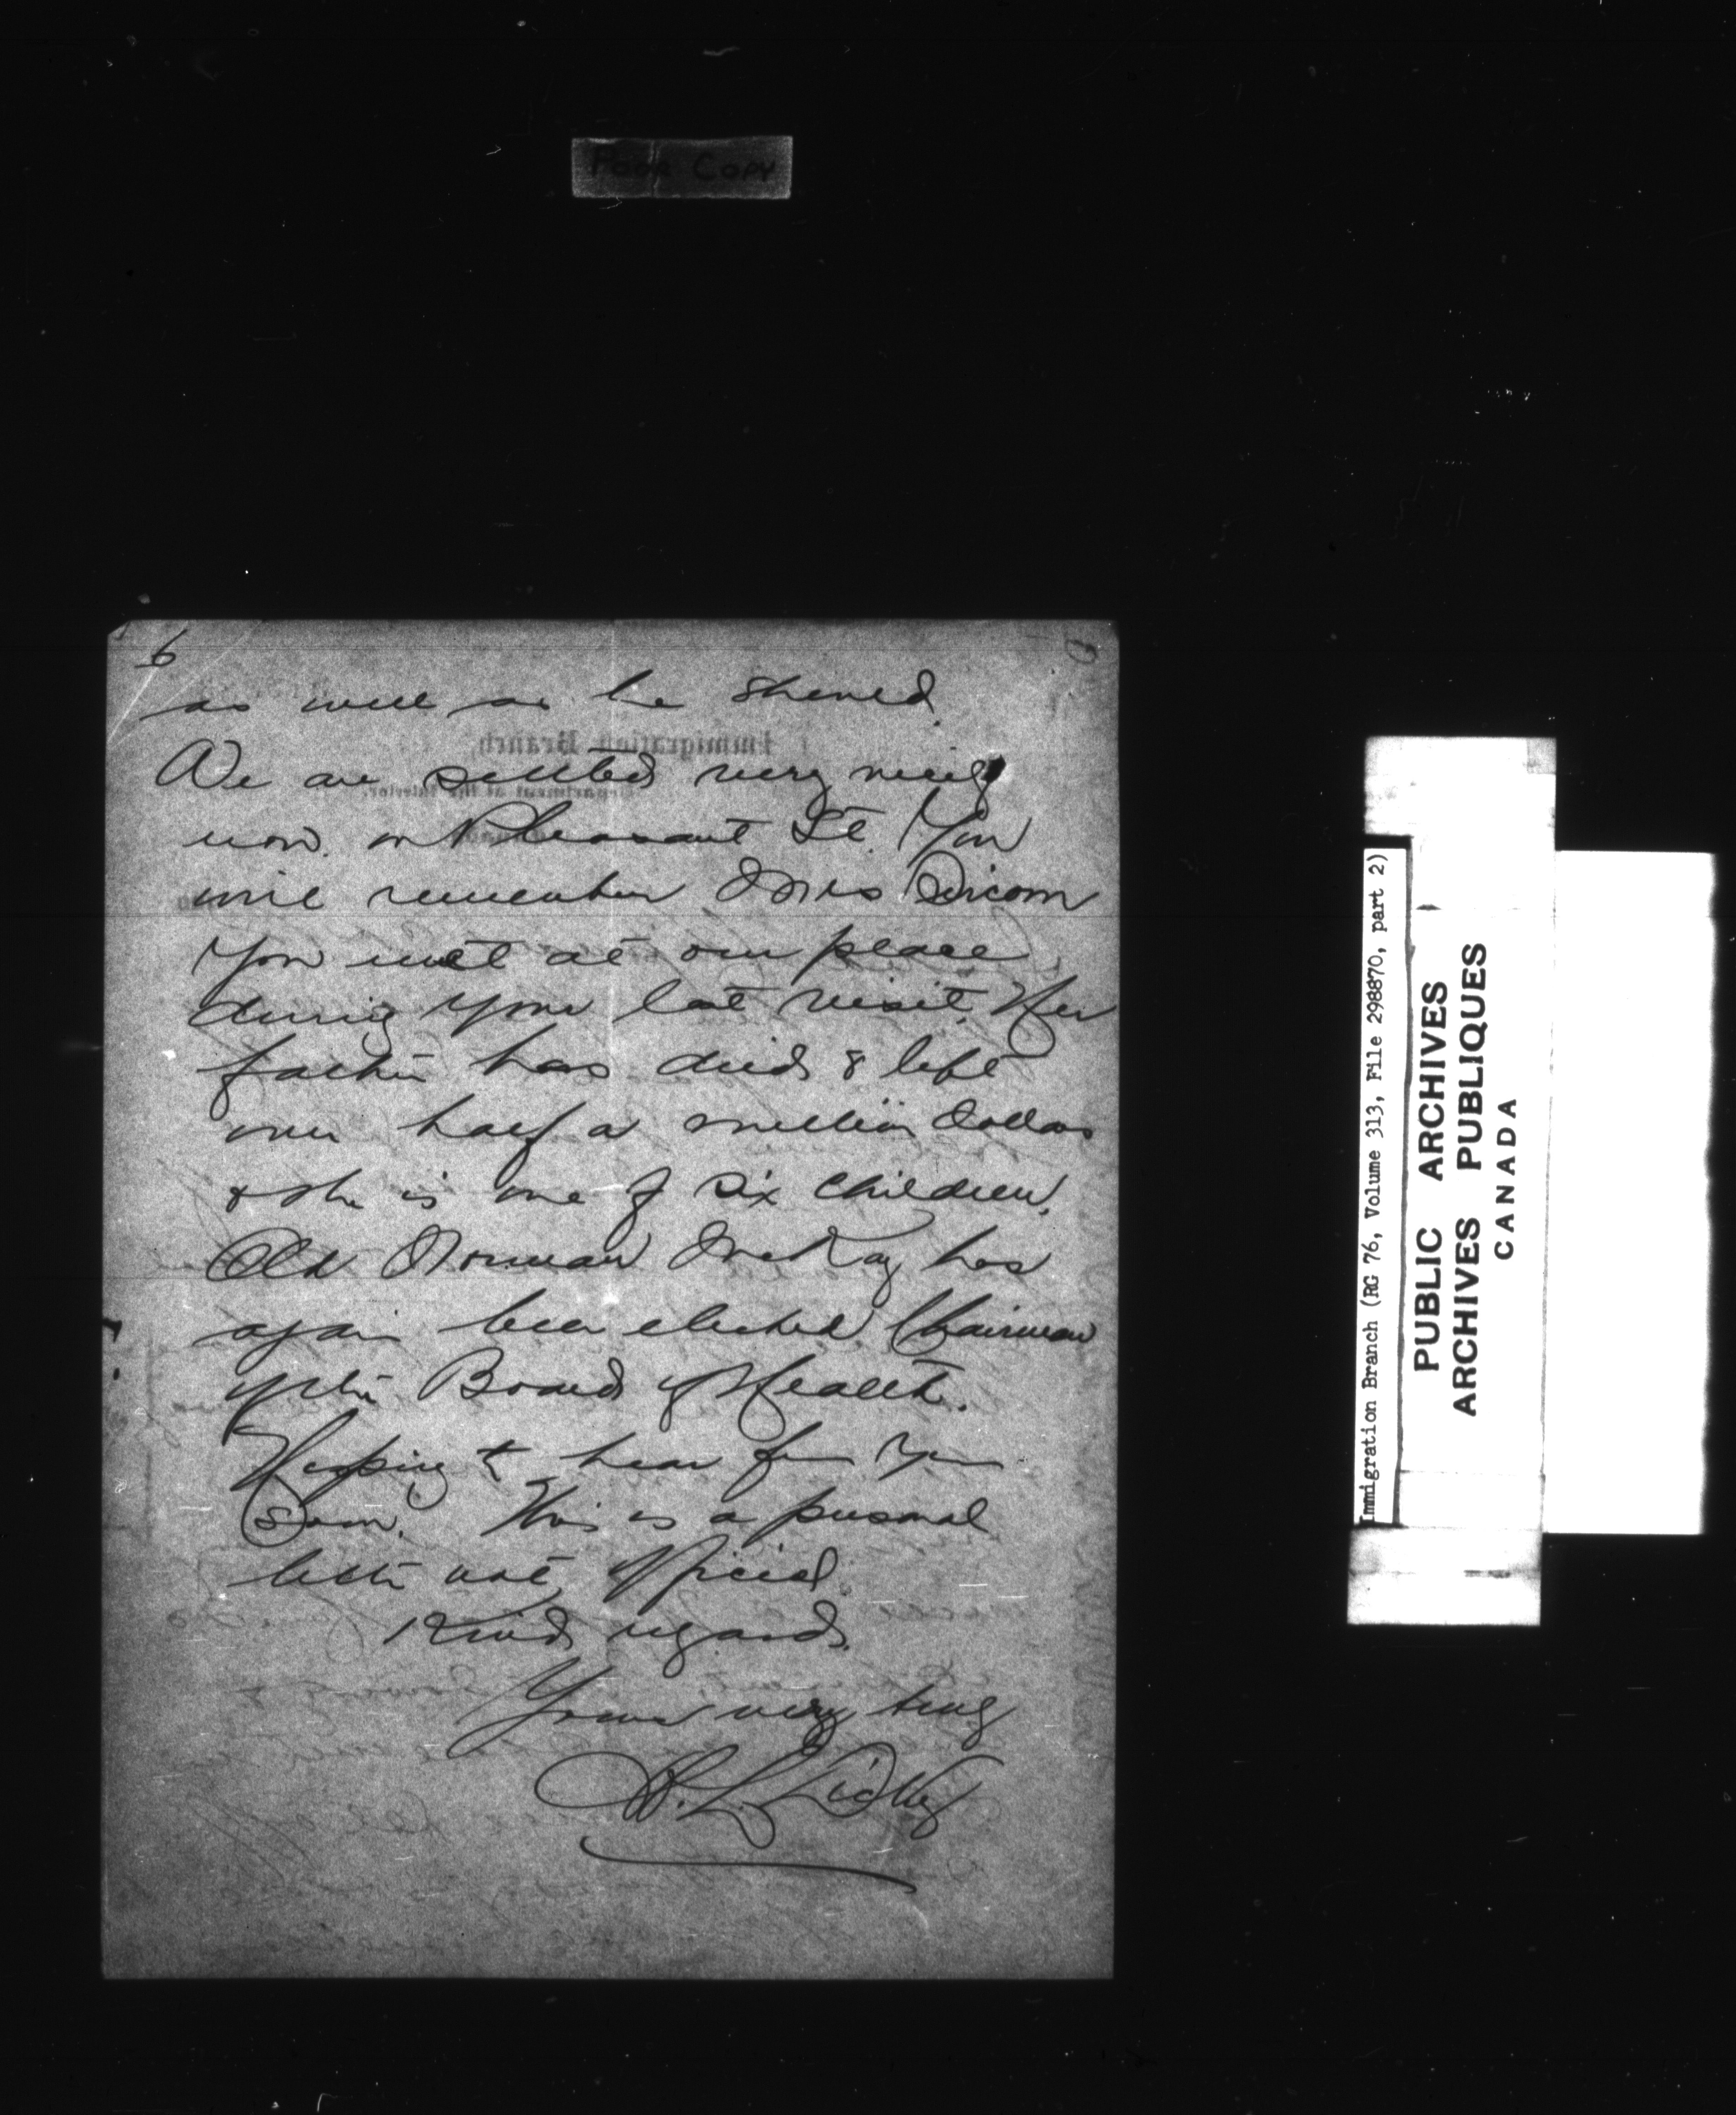 Poor Copy
6
as well as he should.
We are settled very nicely
now on Pleasant St. You
will remember Mrs
You met at our place
during your last visit. Her
father has died & left
over half a million dollars
& she is one of six children.
Old Norman McKay has
again been elected Chairman
of the Board of Health.
Hoping to hear from you
soon. This is a personal
letter not official.
Kind regards.
Yours very truly
Immigration Branch
Department of the Interior.
Immigration Branch (RG 76, Volume 313, File 298870, part 2)
PUBLIC ARCHIVES
ARCHIVES PUBLIQUES
CANADA